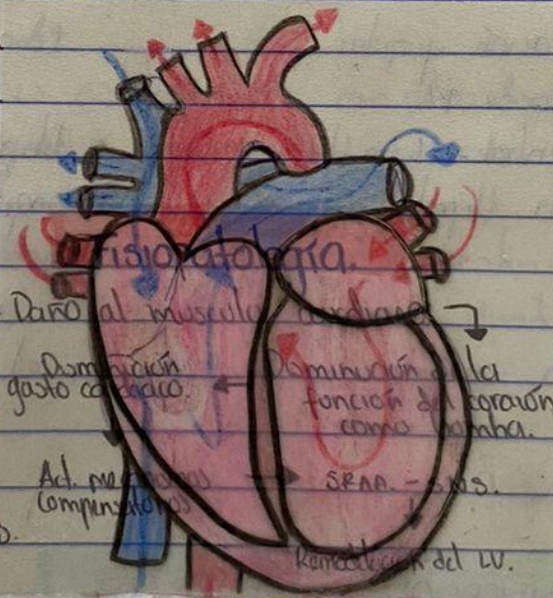 Fisiopatología.
Daño al musculo cardiaco
Disminución
gasto cardiaco.
Disminución la
función del corazón
como bomba.
Act. mecanismos
compensatorios
SRAA. - SNS.
Remodelación del LV.